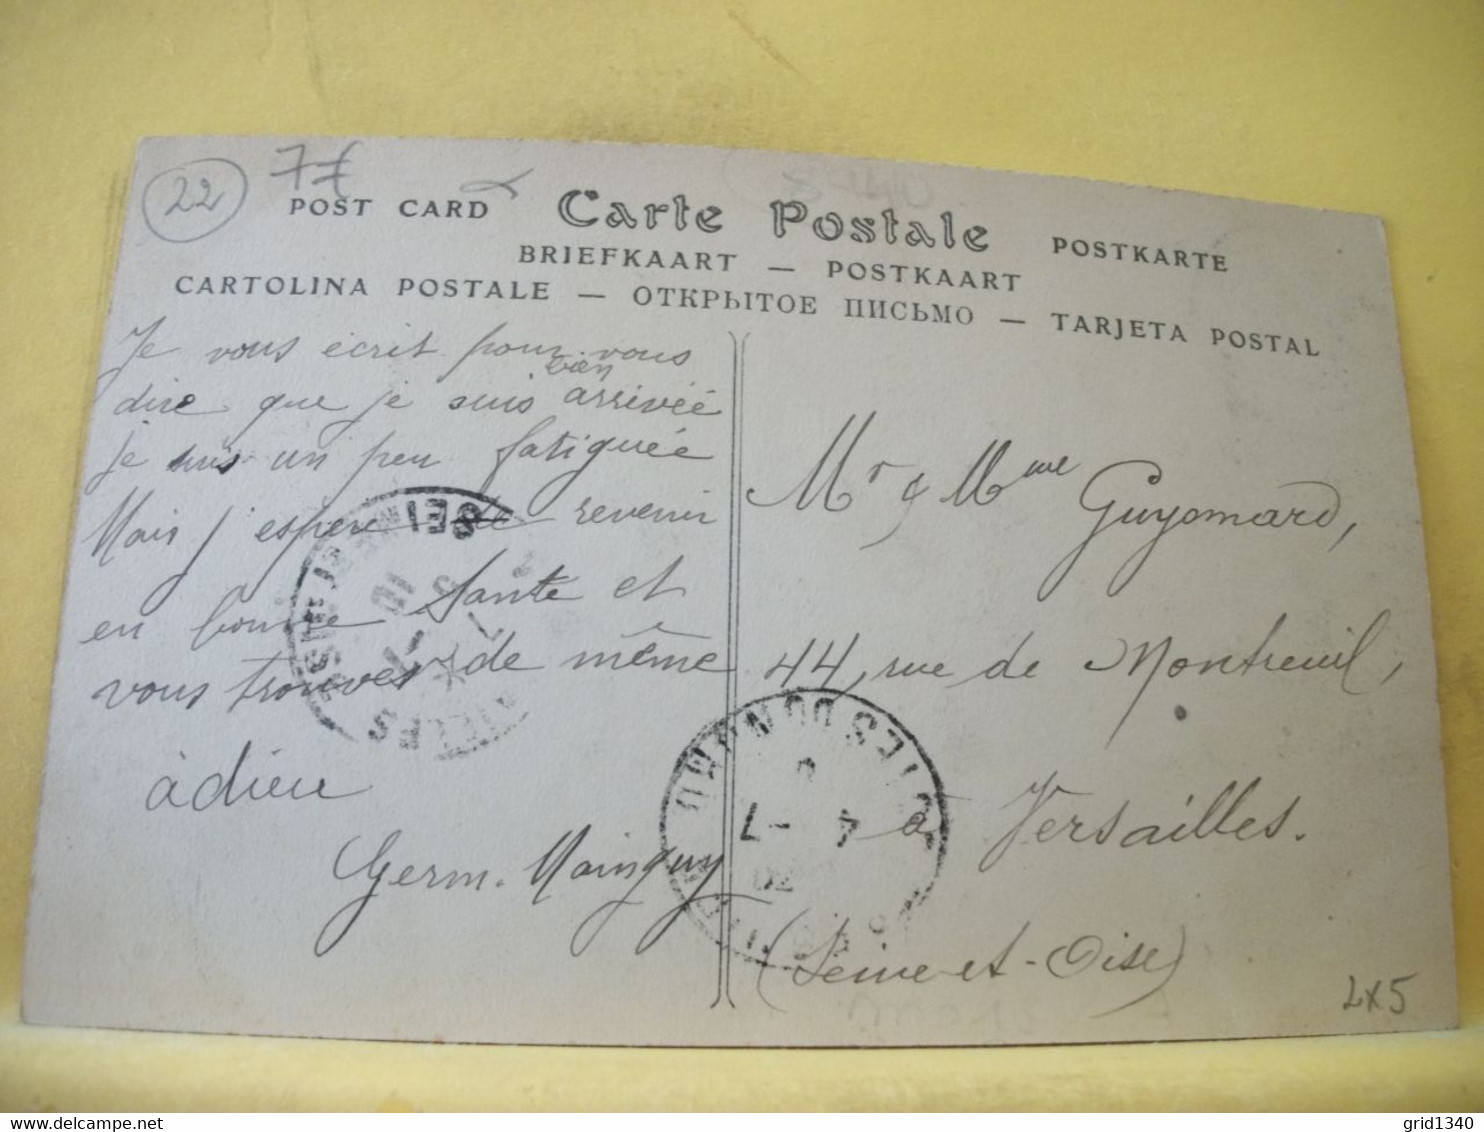 22
77
POST CARD Carte Postale POSTKARTE
BRIEFKAART — POSTKAART
CARTOLINA POSTALE — ОТКРЫТОЕ ПИСЬМО — TARJETA POSTAL
Je vous écrit pour vous
dire que je suis bien arrivéé
je suis un peu fatiguée
Mais j'espere de revenir
en bonne Sante et
vous trouves de même
àdieu
Germ. Mainguy
Mr & Mme Guyomard,
44, rue de Montreuil,
à Versailles.
(Seine-et-Oise)
CÔTES DU NORD
4 -7
VERSAILLES
SEI
LX5
grid1340